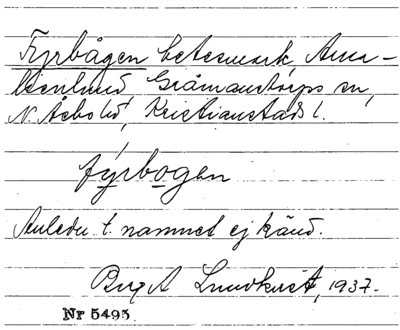 Fyrbågen betesmark, Ama-
lienlund, Gråmanstorps sn,
N. Åsbo hd, Kristianstads l.
fyrbogen
Anledn t. namnet ej känd.
Birgit Lundkvist, 1937.
Nr 5495